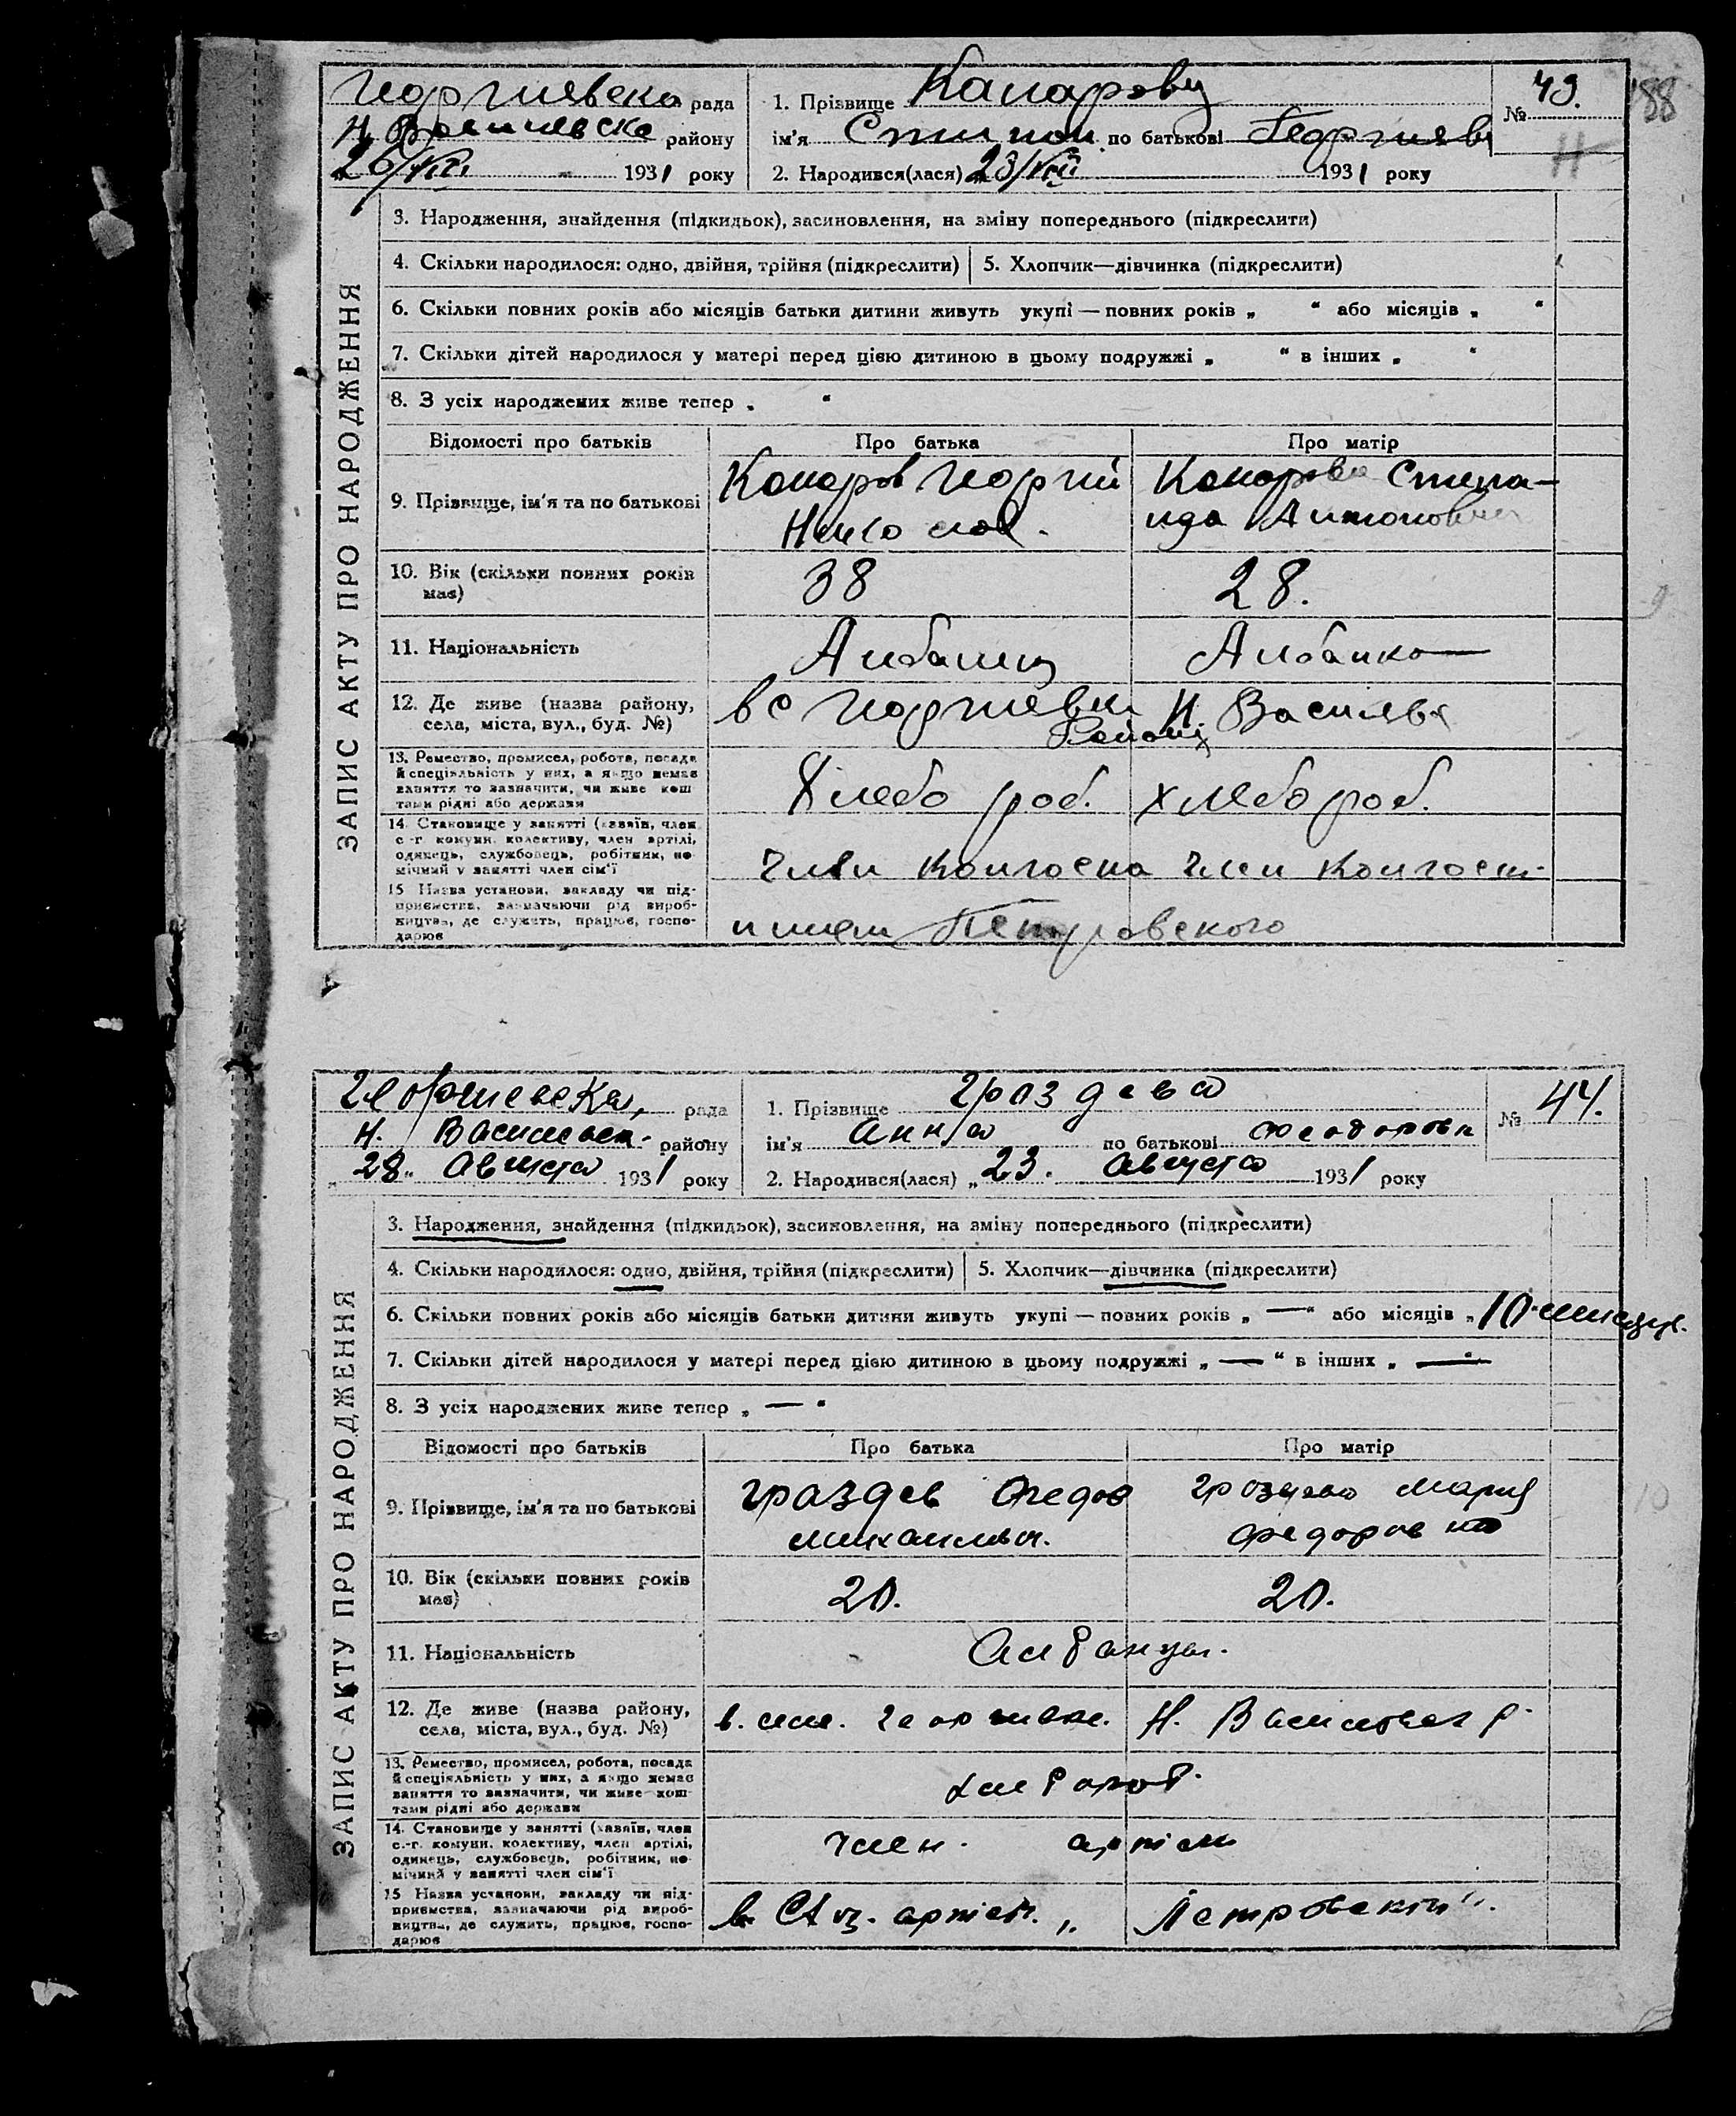 Георгиевска рада
Н Васильевске району
26/VIII 1931 року
1. Прізвище Капарову
ім'я Степан по батькові Георгиев
2. Народився(лася) „23/VIII 1931 року
№ 43.
188
Н
ЗАПИС АКТУ ПРО НАРОДЖЕННЯ
3. Народження, знайдення (підкидьок), засиновлення, на зміну попереднього (підкреслити)
4. Скільки народилося: одно, двійня, трійня (підкреслити)
5. Хлопчик—дівчинка (підкреслити)
6. Скільки повних років або місяців батьки дитини живуть укупі — повних років „ “ або місяців „ “
7. Скільки дітей народилося у матері перед цією дитиною в цьому подружжі „ “ в інших „ “
8. З усіх народжених живе тепер „ “
Відомості про батьків Про батька Про матір
9. Прізвище, ім'я та по батькові
Капаров Георгий
Никол
Капарова Степа-
нида Антоновна
10. Вік (скільки повних років
має)
38 28.
11. Національність Албанец Албанка
12. Де живе (назва району,
села, міста, вул., буд. №)
в с Георгиевки Н. Васильев
Района
13. Ремество, промисел, робота, посада
й спеціяльність у них, а якщо немає
заняття то зазначити, чи живе кош
тами рідні або держави
Хлебороб. хлебороб.
14. Становище у занятті (хазяїн, член
с.-г. комуни, колективу, член артілі,
одинець, службовець, робітник, по-
мічний у занятті член сім'ї
член колгоспа член колгосп.
15 Назва установи, закладу чи під-
приємства, зазначаючи рід вироб-
ництва, де служить, працює, госпо-
дарює
имен Петровского
9
Георгиевска, рада
Н. Васильевк. району
„28„ Августа 1931 року
1. Прізвище Гроздева
ім'я Анна по батькові Феодоровн
2. Народився(лася) „23. Августа 1931 року
№ 44.
ЗАПИС АКТУ ПРО НАРОДЖЕННЯ
3. Народження, знайдення (підкидьок), засиновлення, на зміну попереднього (підкреслити)
4. Скільки народилося: одно, двійня, трійня (підкреслити)
5. Хлопчик—дівчинка (підкреслити)
6. Скільки повних років або місяців батьки дитини живуть укупі — повних років „ —“ або місяців „10 месяцев.
7. Скільки дітей народилося у матері перед цією дитиною в цьому подружжі „ — “ в інших „ — “
8. З усіх народжених живе тепер „ — “
Відомості про батьків Про батька Про матір
9. Прізвище, ім'я та по батькові
Граздев Федор
михаилвч.
Гроздева Мария
Федоровна
10
10. Вік (скільки повних років
має)
20. 20.
11. Національність Албанцы.
12. Де живе (назва району,
села, міста, вул., буд. №)
в. сел. Георгиевк. Н. Васильевск р.
13. Ремество, промисел, робота, посада
й спеціяльність у них, а якщо немає
заняття то зазначити, чи живе кош
тами рідні або держави
хлебороб.
14. Становище у занятті (хазяїн, член
с.-г. комуни, колективу, член артілі,
одинець, службовець, робітник, по-
мічний у занятті член сім'ї
член. артіли
15 Назва установи, закладу чи під-
приємства, зазначаючи рід вироб-
ництва, де служить, працює, госпо-
дарює
в артел. „ Петровский“.